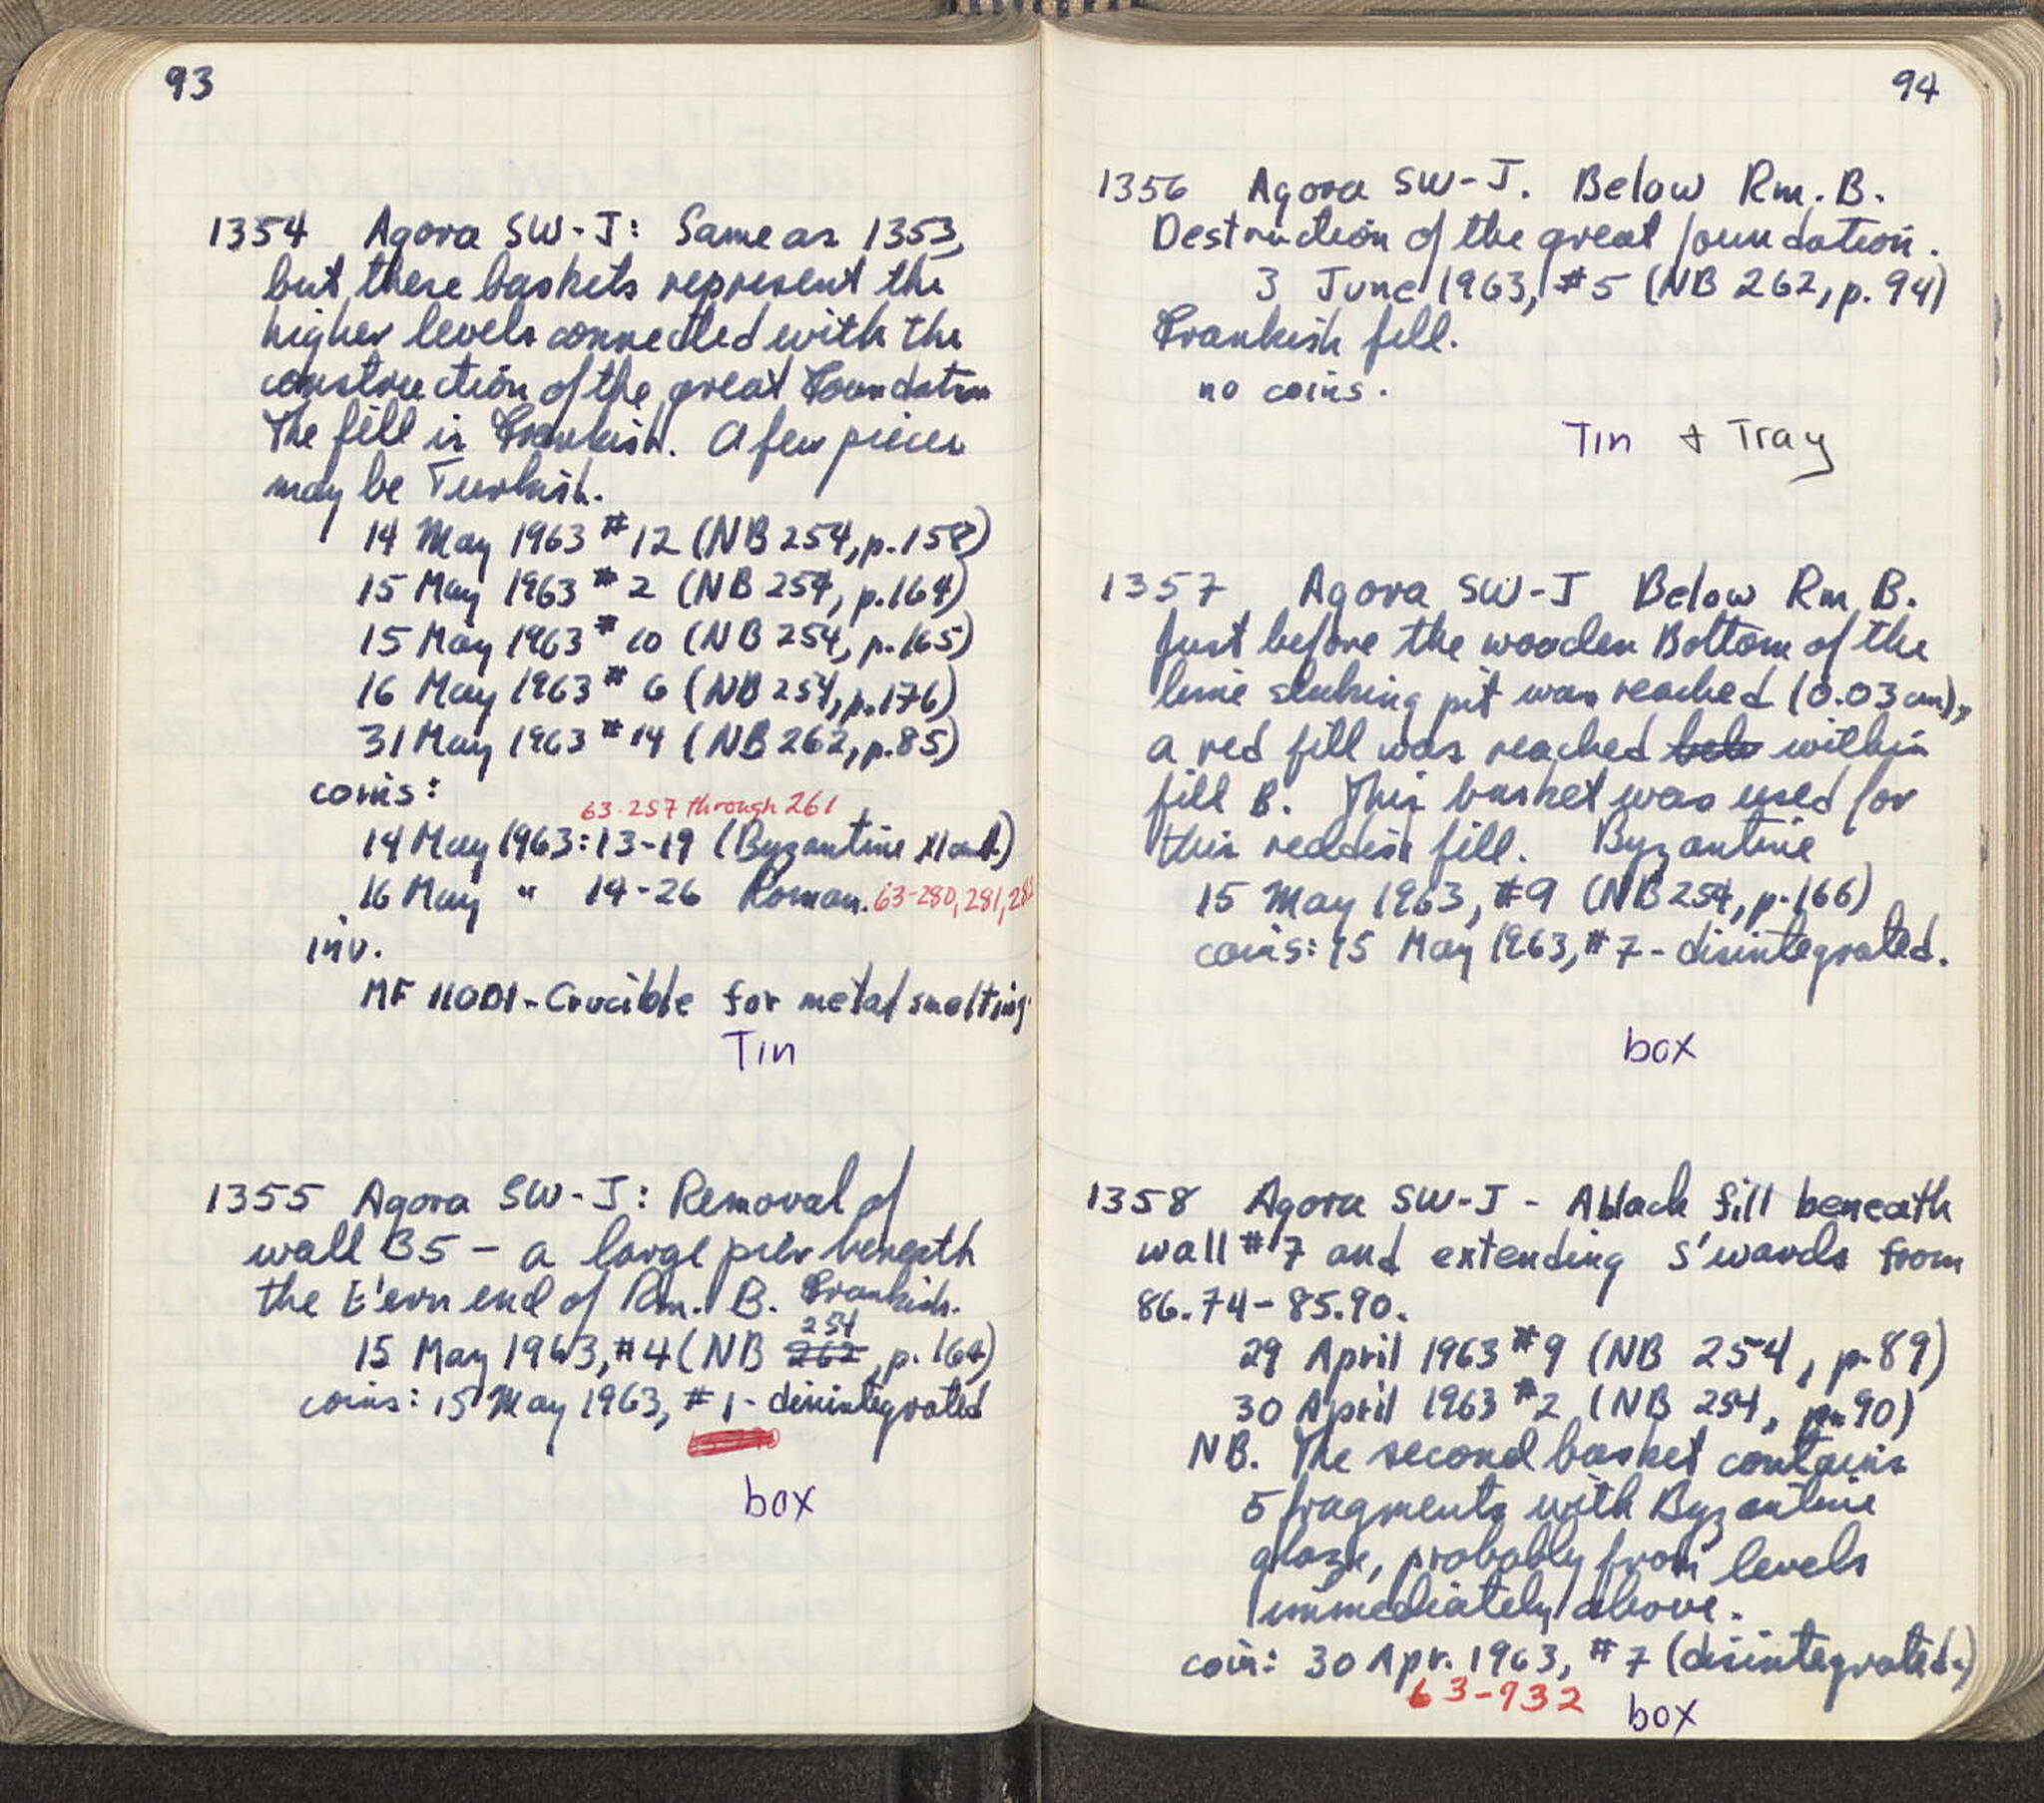 93
1354 Agora SW-J: Same as 1353,
but these baskets represent the
higher levels connected with the
construction of the great Foundation
The fill is Frankish. A few pieces
may be Turkish.
14 May 1963 #12 (NB 254, p.158)
15 May 1963 #2 (NB 254, p.164)
15 May 1963 #10 (NB 254, p.165)
16 May 1963 #6 (NB 254, p.176)
31 May 1963 #14 (NB 262, p.85)
coins:
63-257 through 261
14 May 1963: 13-19 (Byzantine XI
16 May " 14-26 Roman. 63-280, 281,
inv.
MF 11001 - Crucible for metal smelting
Tin
1355 Agora SW-J: Removal of
wall B5 - a large pier beneath
the E'ern end of Rm. B. Frankish.
254
15 May 1963, #4 (NB 262, p.164)
coins: 15 May 1963, #1 - disintegrated
box
94
1356 Agora SW-J. Below Rm. B.
Destruction of the great foundation.
3 June 1963, #5 (NB 262, p. 94)
Frankish fill.
no coins.
Tin + Tray
1357 Agora SW-J Below Rm B.
Just before the wooden Bottom of the
lime slaking pit was reached (0.03 cm),
a red fill was reached within
fill B. This basket was used for
this reddish fill. Byzantine
15 May 1963, #9 (NB 254, p.166)
coins: 15 May 1963, #7 - disintegrated.
box
1358 Agora SW-J - A black fill beneath
wall #7 and extending S'wards from
86.74 - 85.90.
29 April 1963 #9 (NB 254, p.89)
30 April 1963 #2 (NB 254, p.90)
NB. The second basket contains
5 fragments with Byzantine
glaze, probably from levels
immediately above.
coin: 30 Apr. 1963, #7 (disintegrated.)
63-932
box